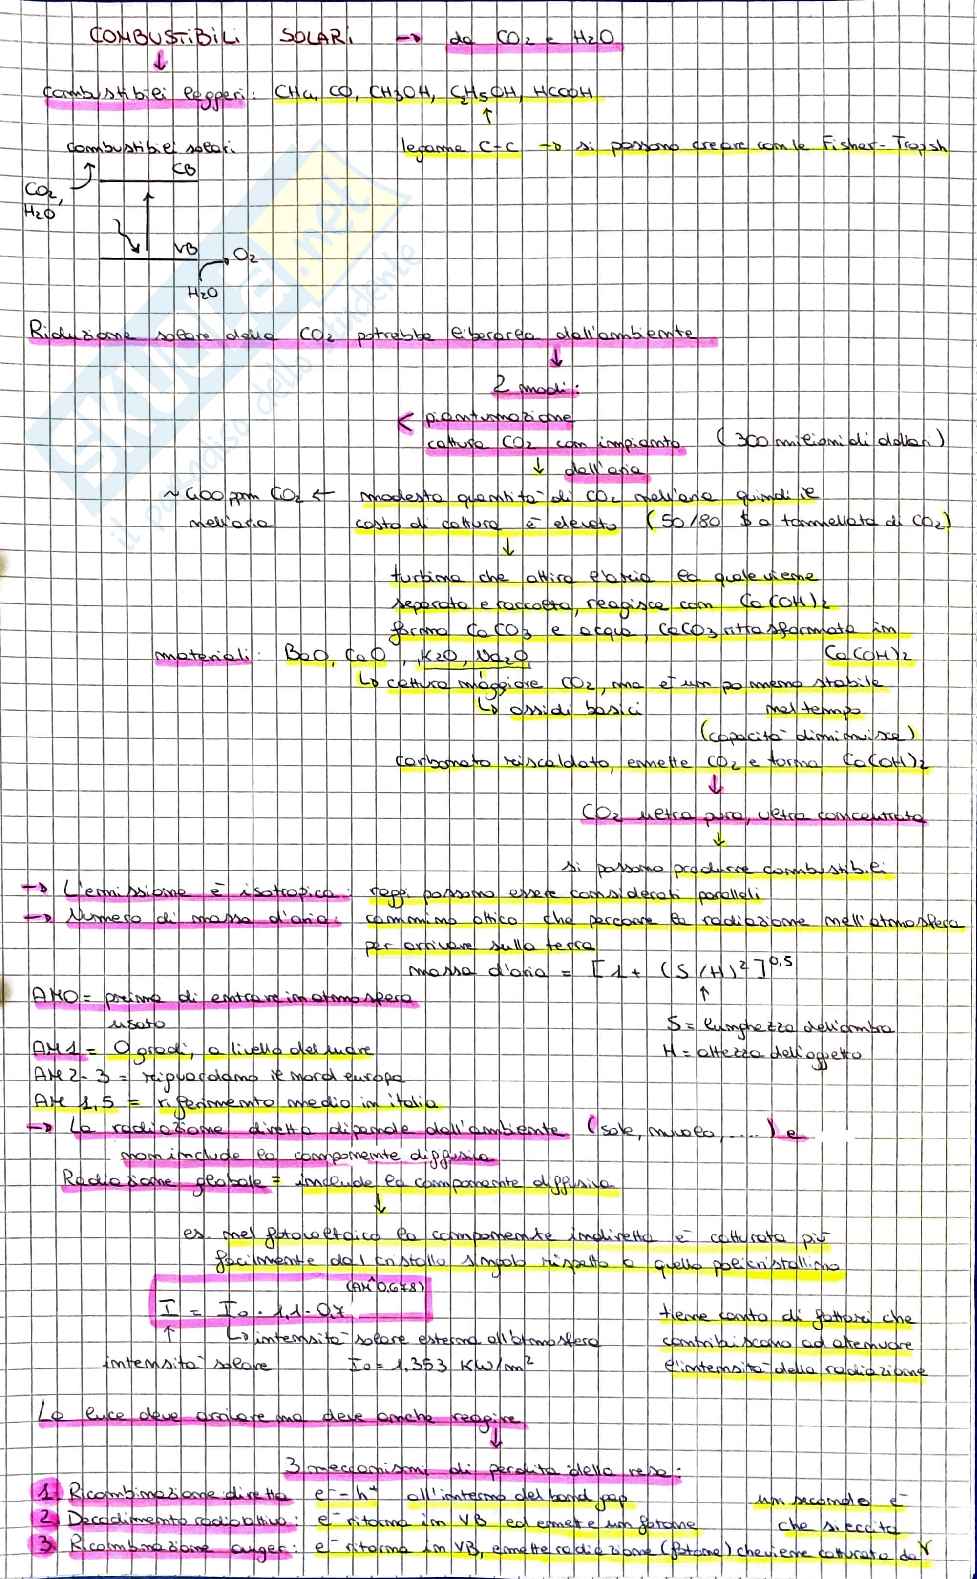 COMBUSTIBILI SOLARI → da CO2 e H2O
Combustibili leggeri: CH4, CO, CH3OH, C2H5OH, HCOOH
combustibili solari
legame C-C → si possono creare con le Fisher-Tropsh
CB
CO2,
H2O
VB
O2
H2O
Riduzione solare della CO2 potrebbe liberarla dall'ambiente
2 modi:
< piantumazione
cattura CO2 con impianto (300 milioni di dollari)
dall'aria
~400 ppm CO2 ← modesta quantità di CO2 nell'aria quindi il
nell'aria costo di cattura è elevato (50/80 $ a tonnellata di CO2)
turbina che attira l'aria la quale viene
separata e raccolta, reagisce con Ca(OH)2
forma CaCO3 e acqua, CaCO3 ritrasformata in
materiali: BaO, CaO, K2O, Na2O Ca(OH)2
↳ cattura maggiore CO2, ma è un po meno stabile
↳ ossidi basici nel tempo
(capacità diminuisce)
carbonato riscaldato, emette CO2 e forma Ca(OH)2
CO2 ultra pura, ultra concentrata
si possono produrre combustibili
→ L'emissione è isotropica: raggi possono essere considerati paralleli
→ Numero di massa d'aria: cammino ottico che percorre la radiazione nell'atmosfera
per arrivare sulla terra
massa d'aria = [1 + (S/H)^2]^0,5
AM0 = prima di entrare in atmosfera
usato
S = lunghezza dell'ombra
AM1 = 0 gradi, a livello del mare
H = altezza dell'oggetto
AM 2-3 = riguardano il nord europa
AM 1,5 = riferimento medio in italia
→ La radiazione diretta dipende dall'ambiente (sole, nuvole, ....) e
non include la componente diffusiva
Radiazione globale = include la componente diffusiva
es. nel fotovoltaico la componente indiretta è catturata più
facilmente dal cristallo singolo rispetto a quello policristallino
(AM^0,678)
I = I0 · 1,1 · 0,7
tiene conto di fattori che
↳ intensità solare esterna all'atmosfera
contribuiscono ad attenuare
intensità solare I0 = 1,353 KW/m2
l'intensità della radiazione
La luce deve arrivare ma deve anche reagire
3 meccanismi di perdita della resa:
1. Ricombinazione diretta e- - h+ all'interno del band gap
un secondo e-
2. Decadimento radiattivo: e- ritorna in VB ed emette un fotone
che si eccita
3. Ricombinazione auger: e- ritorna in VB, emette radiazione (fotone) che viene catturata da
SKUOLA.net
il paradiso dello studente